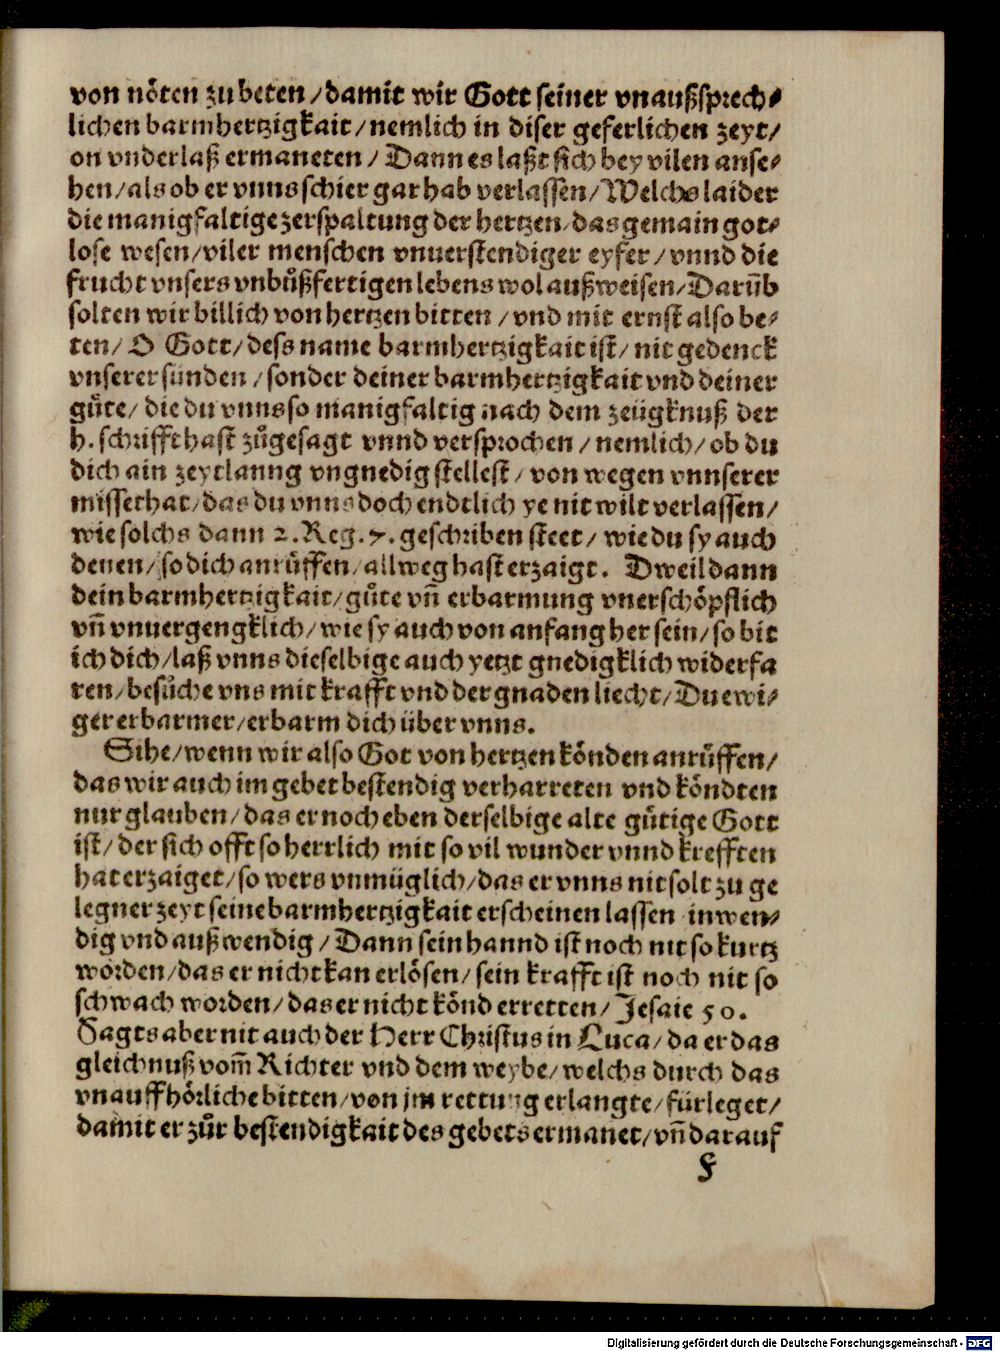 von nöten zu beten / damit wir Gott seiner vnaußsprech⸗
lichen barmhertzigkait / nemlich in diser geferlichen zeyt /
on vnderlaß ermaneten / Dann es laßt sich bey vilen anse⸗
hen / als ob er vnns schier gar hab verlassen / Welchs laider
die manigfaltige zerspaltung der hertzen / das gemain got⸗
lose wesen / viler menschen vnuerstendiger eyfer / vnnd die
frucht vnsers vnbůßfertigen lebens wol außweisen / Darum̃b
solten wir billich von hertzen bitten / vnd mit ernst also be⸗
ten / O Gott / dess name barmhertzigkait ist / nit gedenck
vnserer sünden / sonder deiner barmhertzigkait vnd deiner
gůte / die du vnns so manigfaltig nach dem zeügknuß der
h. schrifft hast zůgesagt vnnd versprochen / nemlich / ob du
dich ain zeytlanng vngnedig stellest / von wegen vnnserer
missethat / das du vnns doch endtlich ye nit wilt verlassen /
wie solchs dann 2. Reg. 7. geschriben steet / wie du sy auch
denen / so dich anrůffen / allweg hast erzaigt. Dweil dann
dein barmhertzigkait / gůte vñ erbarmung vnerschöpflich
vñ vnuergengklich / wie sy auch von anfang her sein / so bit
ich dich / laß vnns dieselbige auch yetzt gnedigklich widerfa
ren / besůche vns mit krafft vnd der gnaden liecht / Du ewi⸗
ger erbarmer / erbarm dich über vnns.
Sihe / wenn wir also Got von hertzen könden anrůffen /
das wir auch im gebet bestendig verharreten vnd köndten
nur glauben / das er noch eben derselbige alte gůtige Gott
ist / der sich offt so herrlich mit so vil wunder vnnd krefften
hat erzaiget / so wers vnmüglich / das er vnns nit solt zu ge
legner zeyt seine barmhertzigkait erscheinen lassen inwen⸗
dig vnd außwendig / Dann sein hannd ist noch nit so kurtz
worden / das er nicht kan erlösen / sein krafft ist noch nit so
schwach worden / das er nicht könd erretten / Jesaie 50.
Sagts aber nit auch der Herr Christus in Luca / da er das
gleichnuß vom̃ Richter vnd dem weybe / welchs durch das
vnauffhörliche bitten / von jm rettung erlangte / fürleget /
damit er zůr bestendigkait des gebets ermanet / vñ darauf
F
Digitalisierung gefördert durch die Deutsche Forschungsgemeinschaft - DFG